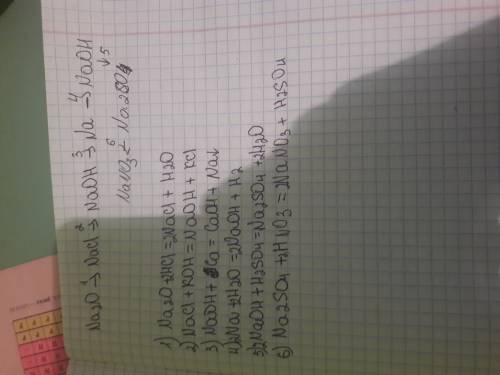 Na2O →1 NaCl →2 NaOH →3 Na →4 NaOH
↓5
NaNO3 ←6 Na2SO4
1) Na2O+2HCl=2NaCl+H2O
2) NaCl+KOH=NaOH+KCl
3) NaOH+Ca=CaOH+Na↓
4) 2Na+2H2O=2NaOH+H2
5) 2NaOH+H2SO4=Na2SO4+2H2O
6) Na2SO4+2HNO3=2NaNO3+H2SO4